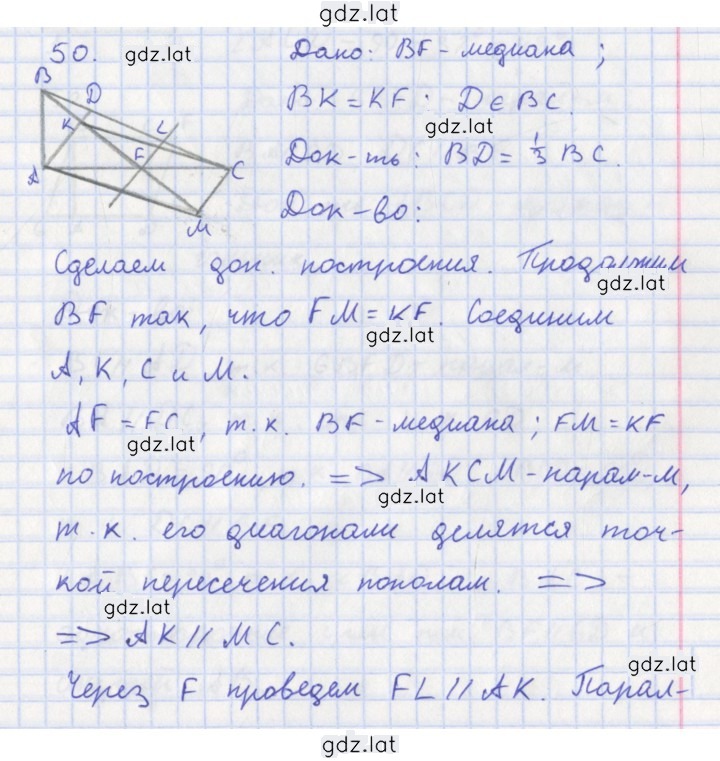 gdz.lat
50.
gdz.lat
Дано: BF - медиана ;
B
D
K
L
F
A
C
M
BK = KF ; D ∈ BC.
gdz.lat
Док-ть: BD = 1/3 BC.
Док-во:
Сделаем доп. построения. Продолжим
gdz.lat
BF так, что FM = KF. Соединим
gdz.lat
A, K, C и M.
AF = FC, т.к. BF - медиана ; FM = KF
gdz.lat
по построению. => AKCM - парал-м,
gdz.lat
т.к. его диагонали делятся точ-
кой пересечения пополам. =>
gdz.lat
=> AK // MC.
gdz.lat
Через F проведем FL // AK. Парал-
gdz.lat